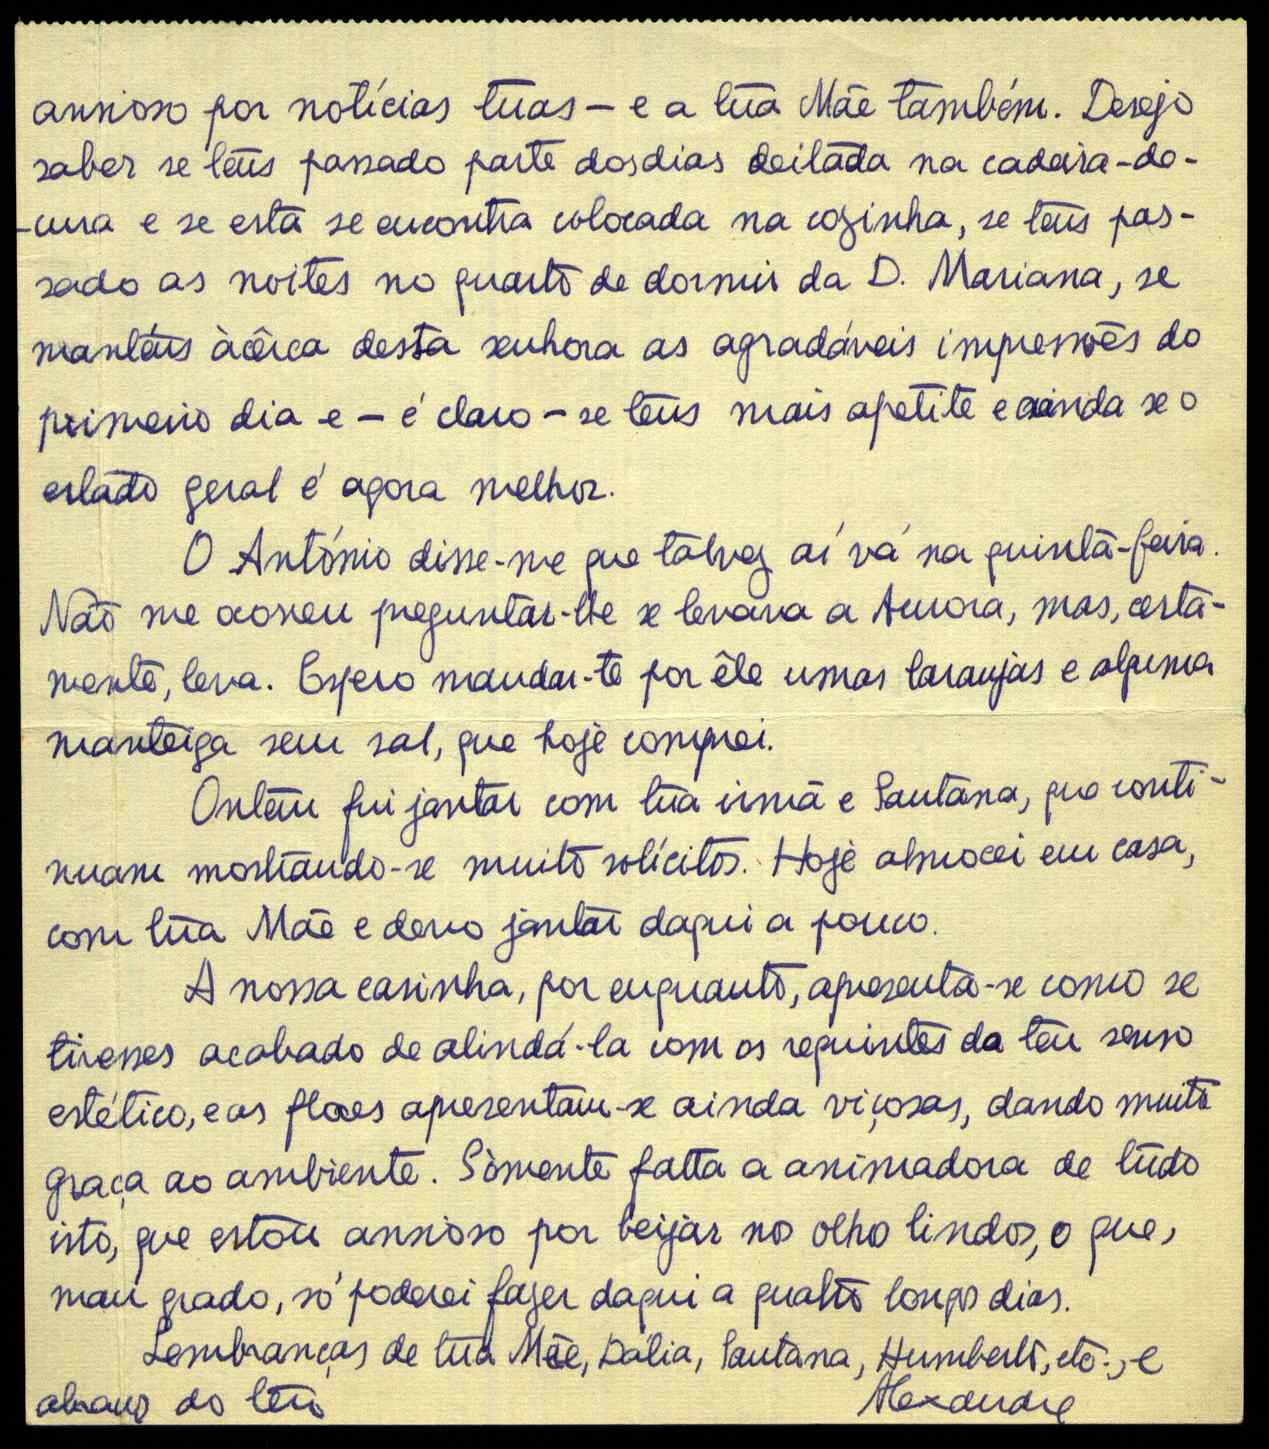 ansioso por notícias tuas — e a tua Mãe também. Desejo
saber se tens passado parte dos dias deitada na cadeira-de-
-cura e se esta se encontra colocada na cozinha, se tens pas-
sado as noites no quarto de dormir da D. Mariana, se
manténs àcêrca desta senhora as agradáveis impressões do
primeiro dia e — é claro — se tens mais apetite e ainda se o
estado geral é agora melhor.
O António disse-me que talvez aí vá na quinta-feira.
Não me ocorreu preguntar-lhe se levava a Aurora, mas, certa-
mente, leva. Espero mandar-te por êle umas laranjas e alguma
manteiga sem sal, que hoje comprei.
Ontem fui jantar com tua irmã e Santana, que conti-
nuam mostrando-se muito solícitos. Hoje almocei em casa,
com tua Mãe e devo jantar daqui a pouco.
A nossa casinha, por enquanto, apresenta-se como se
tivesses acabado de alindá-la com os requintes do teu senso
estético, e as flores apresentam-se ainda viçosas, dando muita
graça ao ambiente. Sòmente falta a animadora de tudo
isto, que estou ansioso por beijar nos olhos lindos, o que,
mau grado, só poderei fazer daqui a quatro longos dias.
Lembranças de tua Mãe, Dália, Santana, Humberto, etc., e
abraços do teu
Alexandre